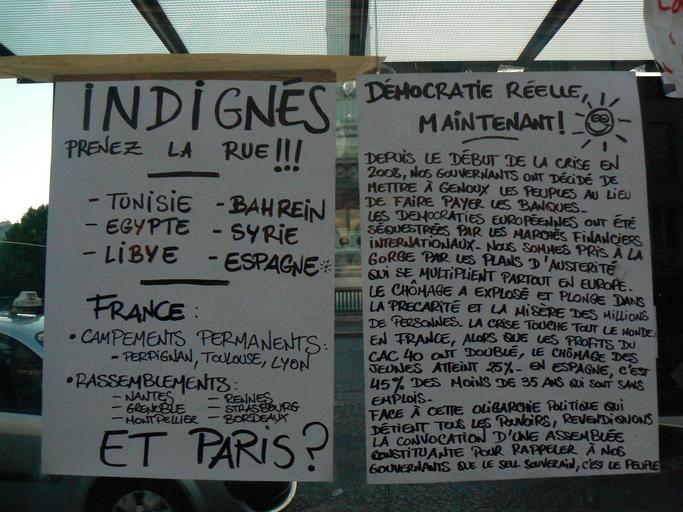 INDIGNÉS
PRENEZ LA RUE!!!
- TUNISIE - BAHREIN
- EGYPTE - SYRIE
- LIBYE - ESPAGNE
FRANCE:
• CAMPEMENTS PERMANENTS:
- PERPIGNAN, TOULOUSE, LYON
• RASSEMBLEMENTS:
- NANTES - RENNES
- GRENOBLE - STRASBOURG
- MONTPELLIER - BORDEAUX
ET PARIS?
DÉMOCRATIE RÉELLE,
MAINTENANT!
DEPUIS LE DÉBUT DE LA CRISE EN
2008, NOS GOUVERNANTS ONT DÉCIDÉ DE
METTRE À GENOUX LES PEUPLES AU LIEU
DE FAIRE PAYER LES BANQUES.
LES DEMOCRATIES EUROPÉENNES ONT ÉTÉ
SÉQUESTRÉES PAR LES MARCHÉS FINANCIERS
INTERNATIONAUX. NOUS SOMMES PRIS À LA
GORGE PAR LES PLANS D'AUSTERITÉ
QUI SE MULTIPLIENT PARTOUT EN EUROPE.
LE CHÔMAGE A EXPLOSÉ ET PLONGE DANS
LA PRECARITÉ ET LA MISÈRE DES MILLIONS
DE PERSONNES. LA CRISE TOUCHE TOUT LE MONDE.
EN FRANCE, ALORS QUE LES PROFITS DU
CAC 40 ONT DOUBLÉ, LE CHÔMAGE DES
JEUNES ATTEINT 25%. EN ESPAGNE, C'EST
45% DES MOINS DE 35 ANS QUI SONT SANS
EMPLOIS.
FACE À CETTE OLIGARCHIE POLITIQUE QUI
DÉTIENT TOUS LES POUVOIRS, REVENDIQUONS
LA CONVOCATION D'UNE ASSEMBLÉE
CONSTITUANTE POUR RAPPELER À NOS
GOUVERNANTS QUE LE SEUL SOUVERAIN, C'EST LE PEUPLE